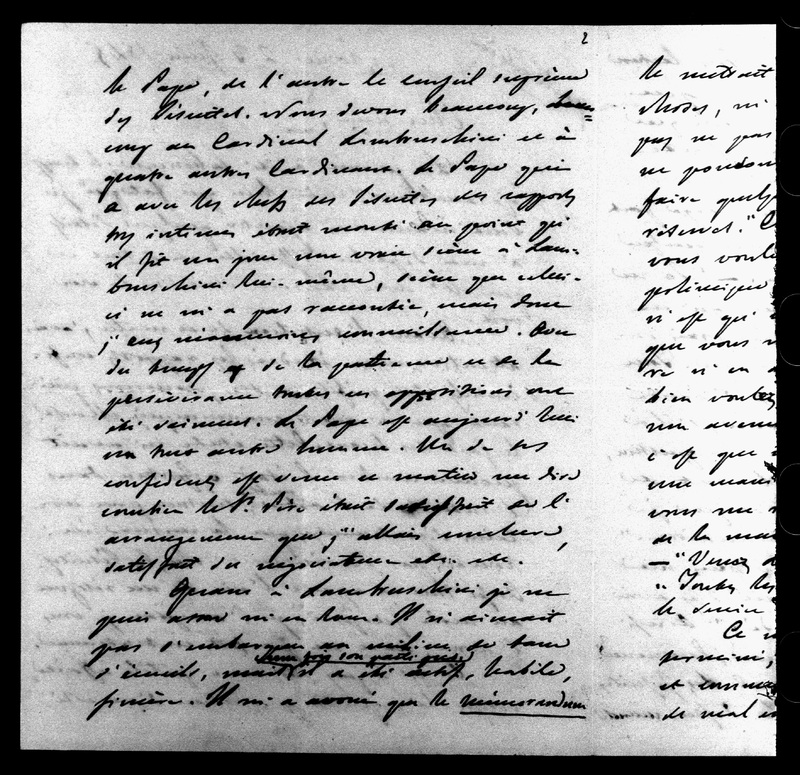 2
le Pape, de l'autre le conseil suprême
des Jésuites. Nous devons beaucoup, beau=
coup au Cardinal Lambruschini et à
quatre autres Cardinaux. Le Pape qui
a avec les chefs des Jésuites des rapports
très intimes était monté au point qu'
il fit un jour une vraie scène à Lam-
bruschini lui-même, scène que celui-
ci ne m'a pas racontée, mais dont
j'eus néanmoins connaissance. Avec
du temps et de la patience et de la
persévérance toutes ces oppositions ont
été vaincues. Le Pape est aujourd'hui
un tout autre homme. Un de ses
confidents est venu ce matin me dire
combien le St. Père était satisfait de l'
arrangement que j'allais conclure,
satisfait du négociateur etc. etc.
Quant à Lambruschini je ne
puis assez m'en louer. Il n'aimait
pas s'embarquer au milieu de tant
une fois son parti pris
d'écueils, mais il a été actif, habile,
sincère. Il m'a avoué que le mémorandum
le mettait
choses, ni
pas ne pas
ne pouvons
faire quelq
réserves."
vous voul
politique
n'est qu'
que vous
re si on
bien voulez
un
c'est que
une mani
vous me
de la
— "Venez
" Toutes les
le service
Ce
termine,
et
de